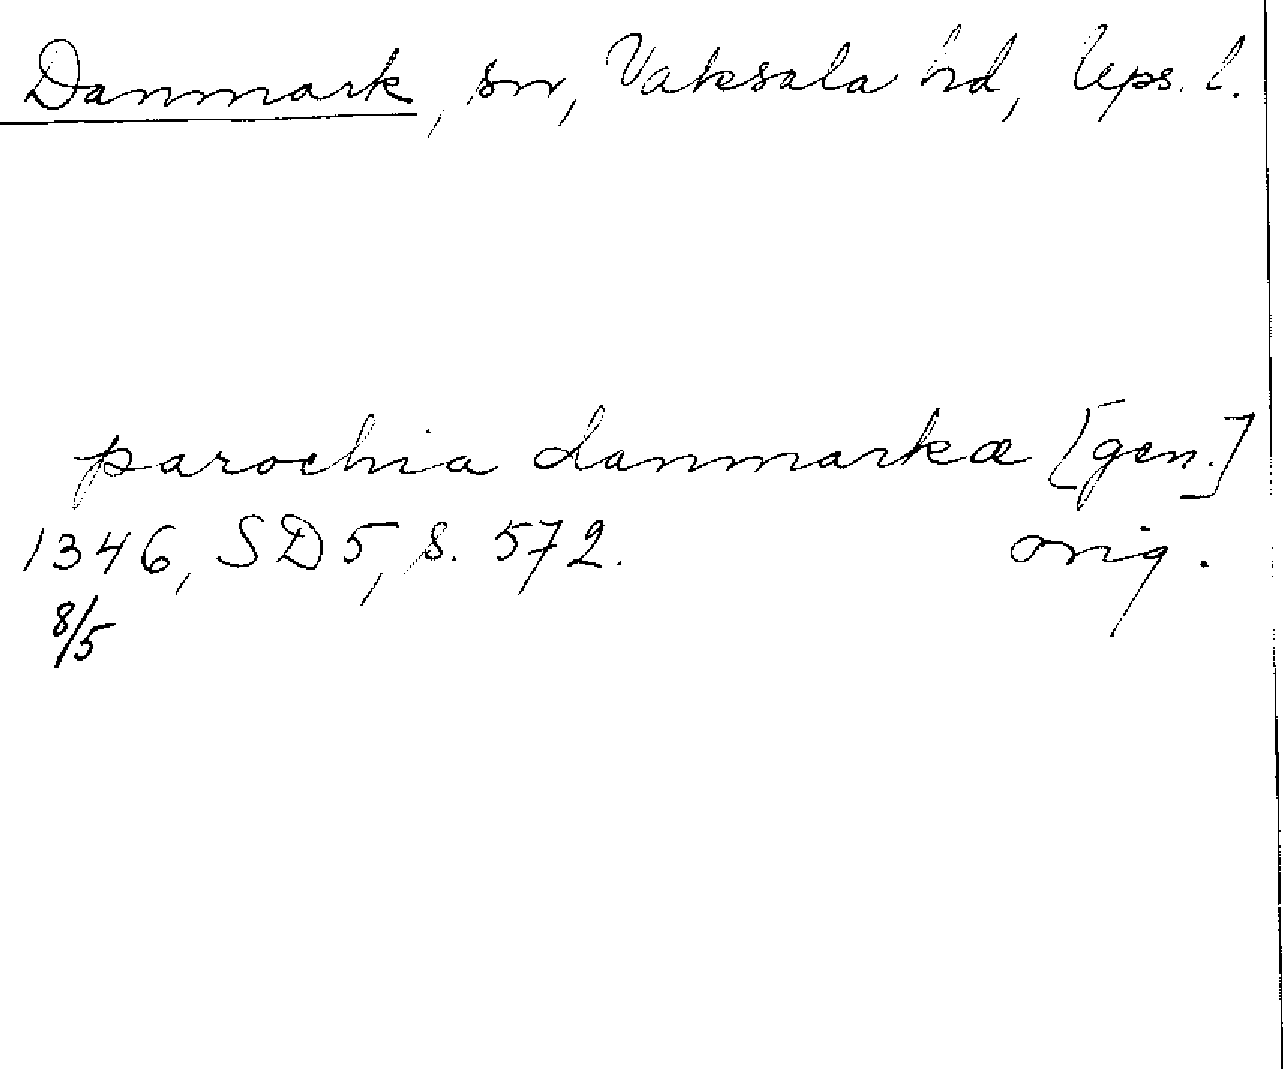 Danmark, sn, Vaksala hd, Ups. l.
parochia danmarka [gen.]
1346, SD 5, s. 572. orig.
8/5